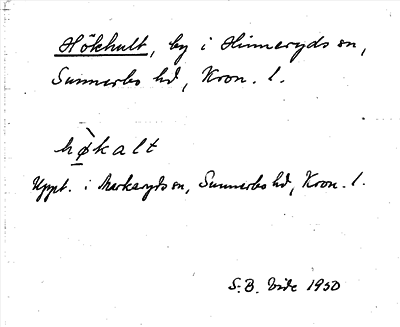 Hökhult, by i Hinneryds sn,
Sunnerbo hd, Kron. l.
hø̀kalt
Uppt. i Markaryds sn, Sunnerbo hd, Kron. l.
S.B. Vide 1950